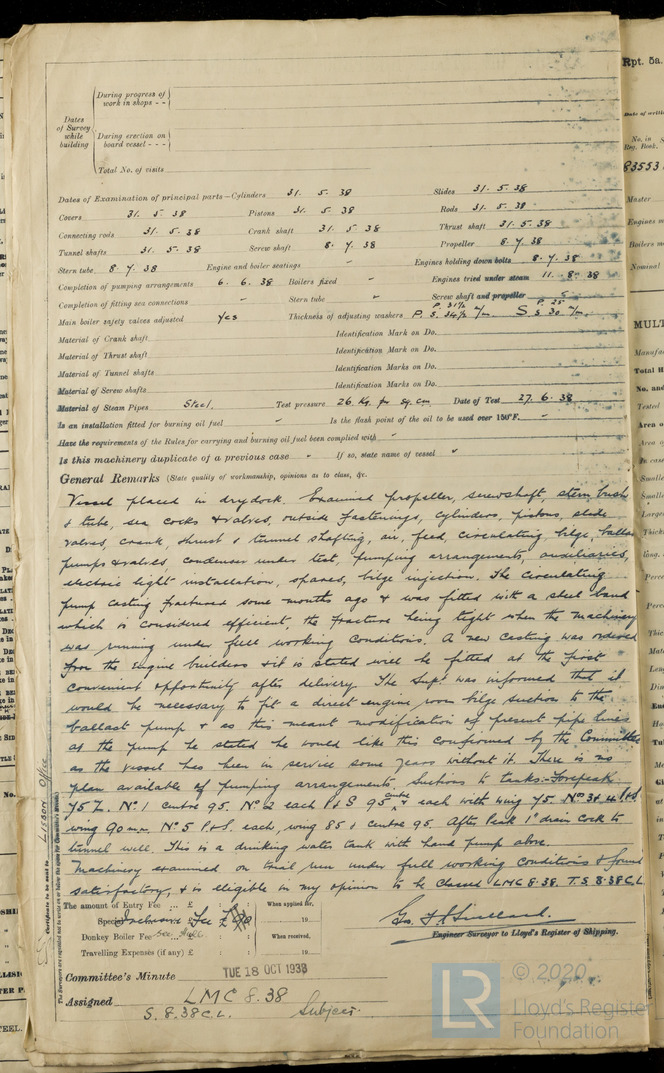 During progress of work in shops - -
Dates of Survey while building
During erection on board vessel - - -
Total No. of visits
Dates of Examination of principal parts—Cylinders 31. 5. 38 Slides 31. 5. 38
Covers 31. 5. 38 Pistons 31. 5. 38 Rods 31. 5. 38
Connecting rods 31. 5. 38 Crank shaft 31. 5. 38 Thrust shaft 31. 5. 38
Tunnel shafts 31. 5. 38 Screw shaft 8. 7. 38 Propeller 8. 7. 38
Stern tube 8. 7. 38 Engine and boiler seatings - Engines holding down bolts 8. 7. 38
Completion of pumping arrangements 6. 6. 38 Boilers fixed - Engines tried under steam 11. 8. 38
Completion of fitting sea connections - Stern tube - Screw shaft and propeller
Main boiler safety valves adjusted Yes Thickness of adjusting washers P. P. 31½ S. 34½ m/m S P. 25 S 30 m/m
Material of Crank shaft Identification Mark on Do.
Material of Thrust shaft Identification Mark on Do.
Material of Tunnel shafts Identification Marks on Do.
Material of Screw shafts Identification Marks on Do.
Material of Steam Pipes Steel. Test pressure 26 Kg. per sq. cm. Date of Test 27. 6. 38
Is an installation fitted for burning oil fuel - Is the flash point of the oil to be used over 150°F. -
Have the requirements of the Rules for carrying and burning oil fuel been complied with "
Is this machinery duplicate of a previous case " If so, state name of vessel "
General Remarks (State quality of workmanship, opinions as to class, &c.
Vessel placed in drydock. Examined propeller, screwshaft, stern bush
& tube, sea cocks & valves, outside fastenings, cylinders, pistons, slide
valves, crank, thrust & tunnel shafting, air, feed, circulating, bilge, ballast
pumps & valves, condenser under test, pumping arrangements, auxiliaries,
electric light installation, spares, bilge injection. The circulating
pump casting fractured some months ago & was fitted with a steel band
which is considered efficient, the fracture being tight when the machinery
was running under full working conditions. A new casting was ordered
from the engine builders & it is stated will be fitted at the first
convenient opportunity after delivery. The Supt was informed that it
would be necessary to fit a direct engine room bilge suction to the
ballast pump & as this meant modification of present pipe lines
at the pump he stated he would like this confirmed by the Committee
as the vessel has been in service some years without it. There is no
plan available of pumping arrangements. Suctions to tanks:- Forepeak
75 Z. No 1 centre 95. No 2 each P & S 95, centre & each with wing 75. Nos 3 & 4 P&S.
wing 90 m.m. No 5 P & S. each, wing 85 & centre 95. After Peak 1" drain cock to
tunnel well. This is a drinking water tank with hand pump above.
Machinery examined on trial run under full working conditions & found
satisfactory, & is eligible in my opinion to be classed LMC 8.38. T.S 8.38 C.L.
The amount of Entry Fee ... £ : : When applied for,
Special £ : : 19
Donkey Boiler Fee ... £ : : When received,
Travelling Expenses (if any) £ : : 19
Engineer Surveyor to Lloyd's Register of Shipping.
Committee's Minute TUE 18 OCT 1938
Assigned LMC 8.38
S. 8.38 C.L. Subject.
Certificate to be sent to LISBON Office
© 2020
LR Lloyd's Register Foundation
Rpt. 5a.
No. in Reg. Book.
83553
Master
MULT